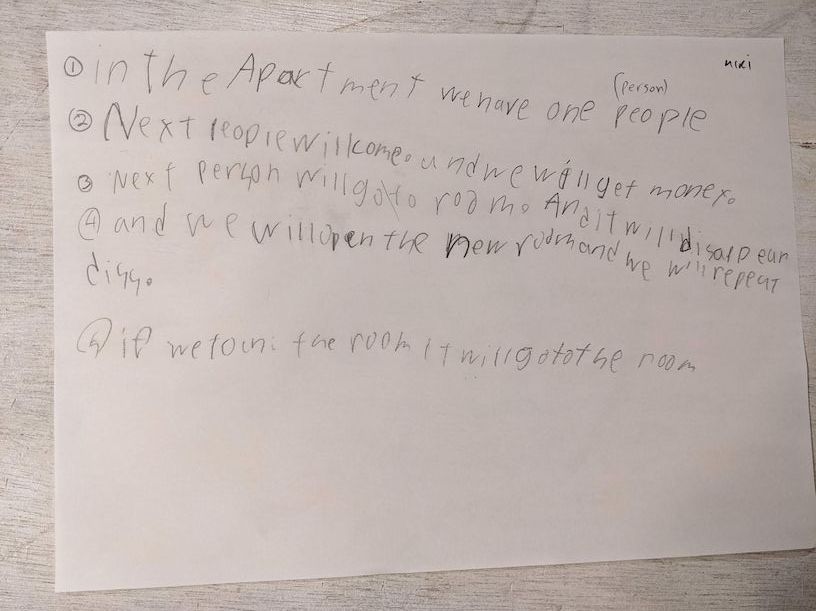 niki
① in the Apartment we have one people
(person)
② Next people will come. and we will get money.
③ Next person will go to room. And it will disappear
④ and we will open the new room and we will repeat
diss.
⑤ if we the room it will go to the room